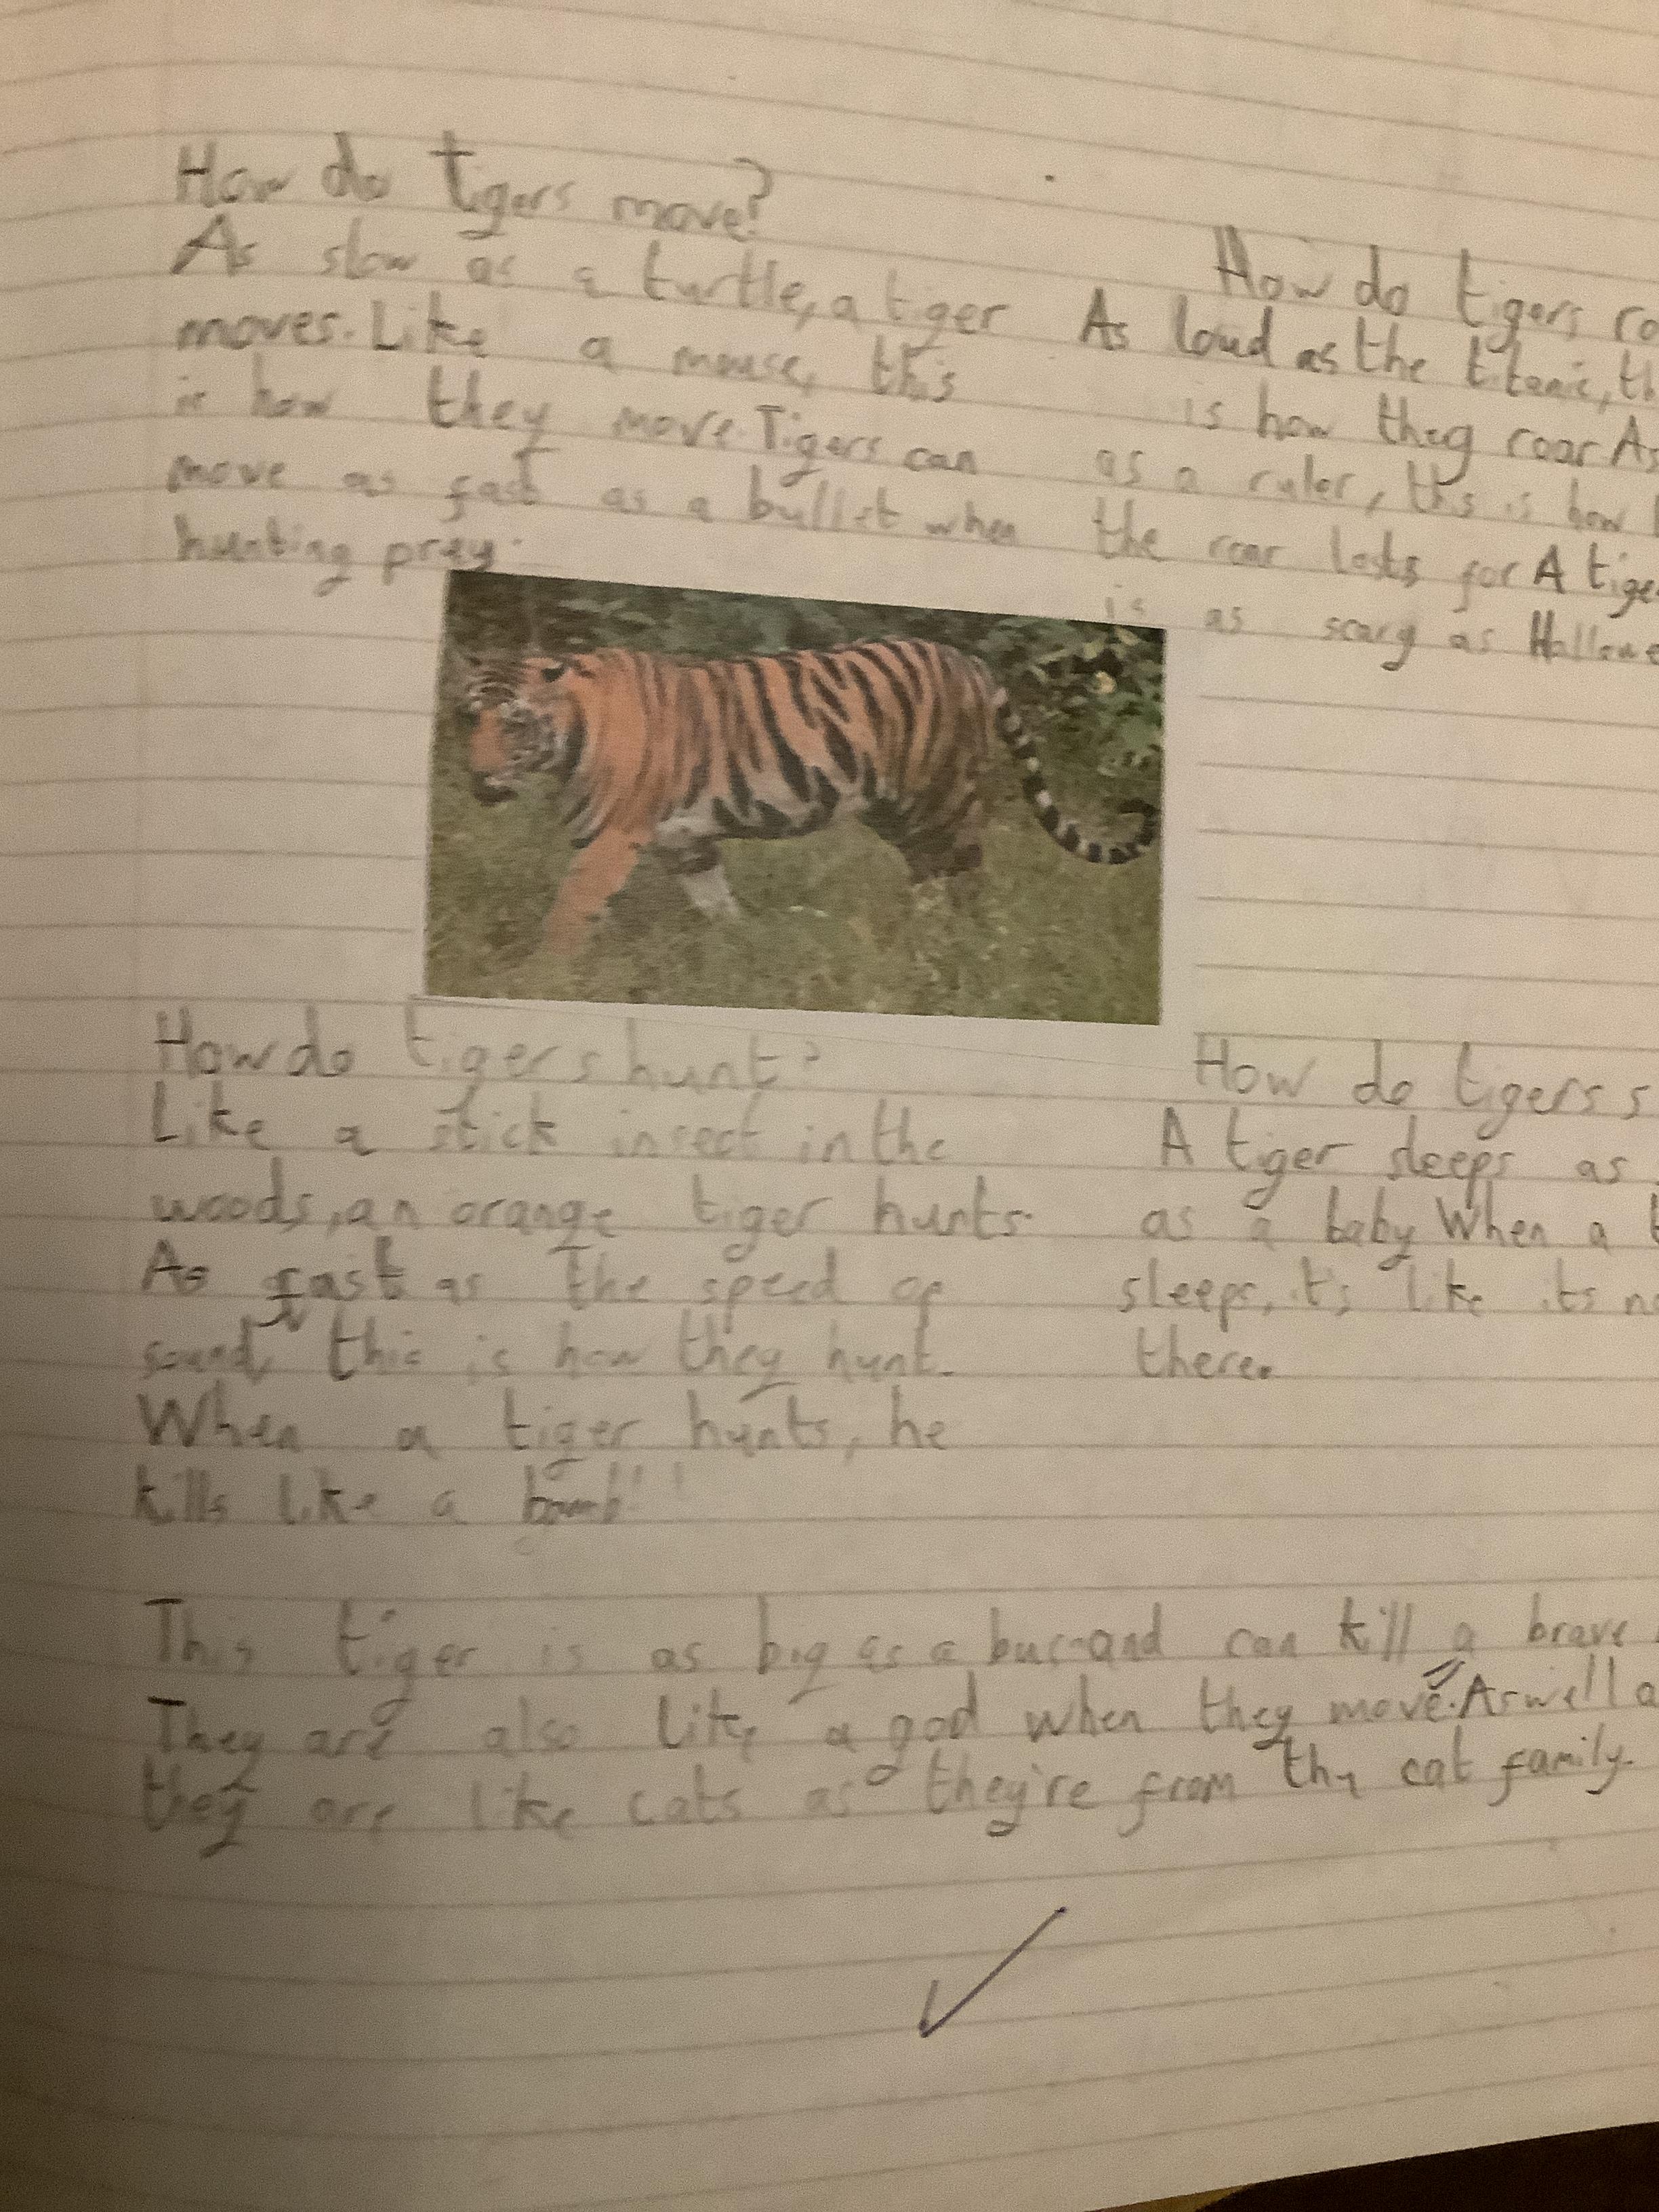 How do tigers move?
As slow as a turtle, a tiger
moves. Like a mouse, this
is how they move. Tigers can
move as fast as a bullet when
hunting prey.
How do tigers
As loud as the titanic,
is how they roar As
as a ruler, this is how
the roar lasts for A
is as scary as
How do tigers hunt?
Like a stick insect in the
woods, an orange tiger hunts.
As fast as the speed of
sound, this is how they hunt.
When a tiger hunts, he
kills like a bomb!!
How do tigers
A tiger sleeps as
as a baby When a
sleeps, it's like its
there.
This tiger is as big as a bus and can kill a brave
They are also like a god when they move. As well
they are like cats as they're from the cat family.